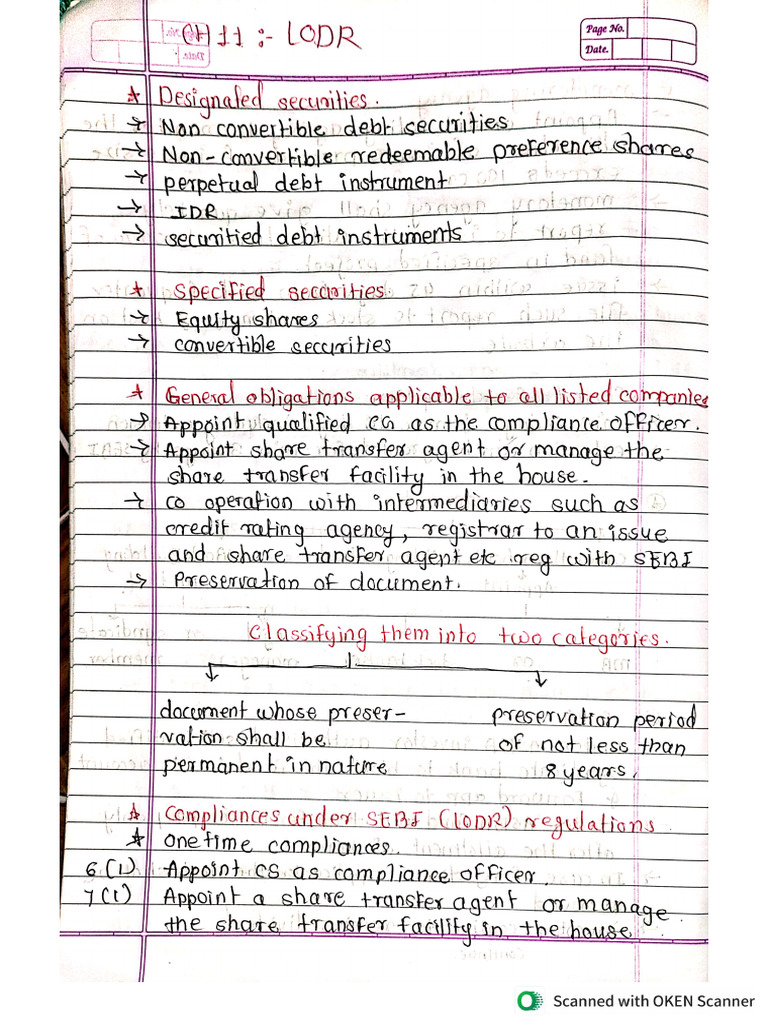 CH 11 :- LODR
Page No.
Date.
* Designated securities.
→ Non convertible debt securities
→ Non-convertible redeemable preference shares
→ perpetual debt instrument
→ IDR
→ securitied debt instruments
* Specified securities
→ Equity shares
→ convertible securities
* General obligations applicable to all listed companies
→ Appoint qualified CS as the compliance officer.
→ Appoint share transfer agent or manage the
share transfer facility in the house.
→ co operation with intermediaries such as
credit rating agency, registrar to an issue
and share transfer agent etc reg with SEBI
→ Preservation of document.
Classifying them into two categories.
document whose preser-
vation shall be
permanent in nature
preservation period
of not less than
8 years.
* Compliances under SEBI (LODR) regulations
* One time compliances.
6(1) Appoint CS as compliance officer.
7(1) Appoint a share transfer agent or manage
the share transfer facility in the house
Scanned with OKEN Scanner